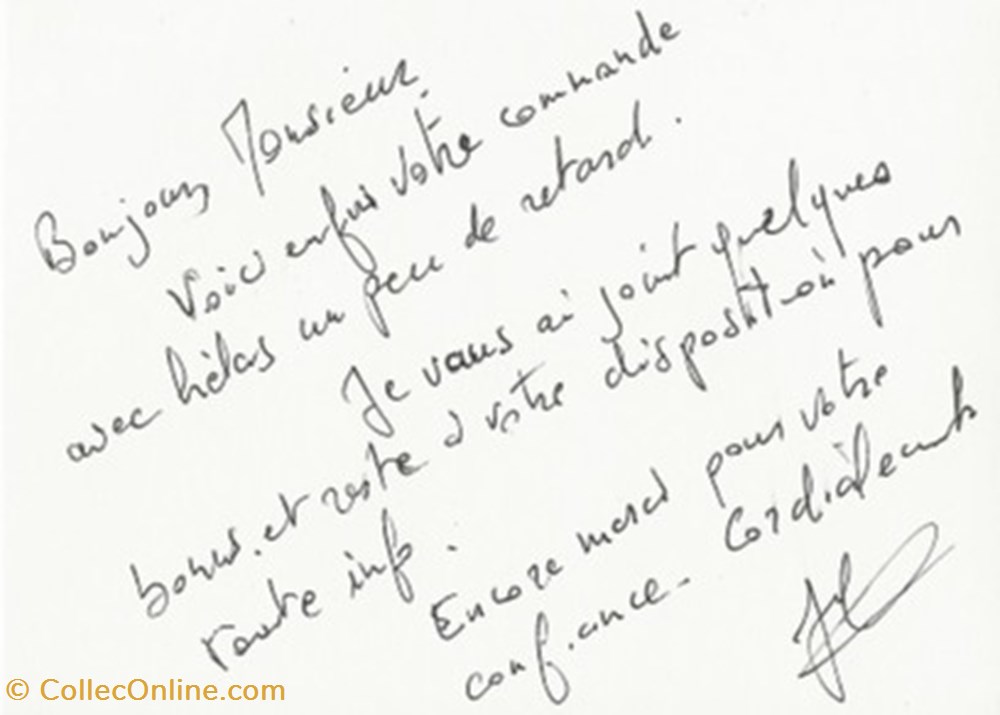 Bonjour Monsieur.
Voici enfin votre commande
avec hélas un peu de retard.
Je vous ai joint quelques
bonus. et reste à votre disposition pour
toute inf.
Encore merci pour votre
confiance - Cordialement
© CollecOnline.com